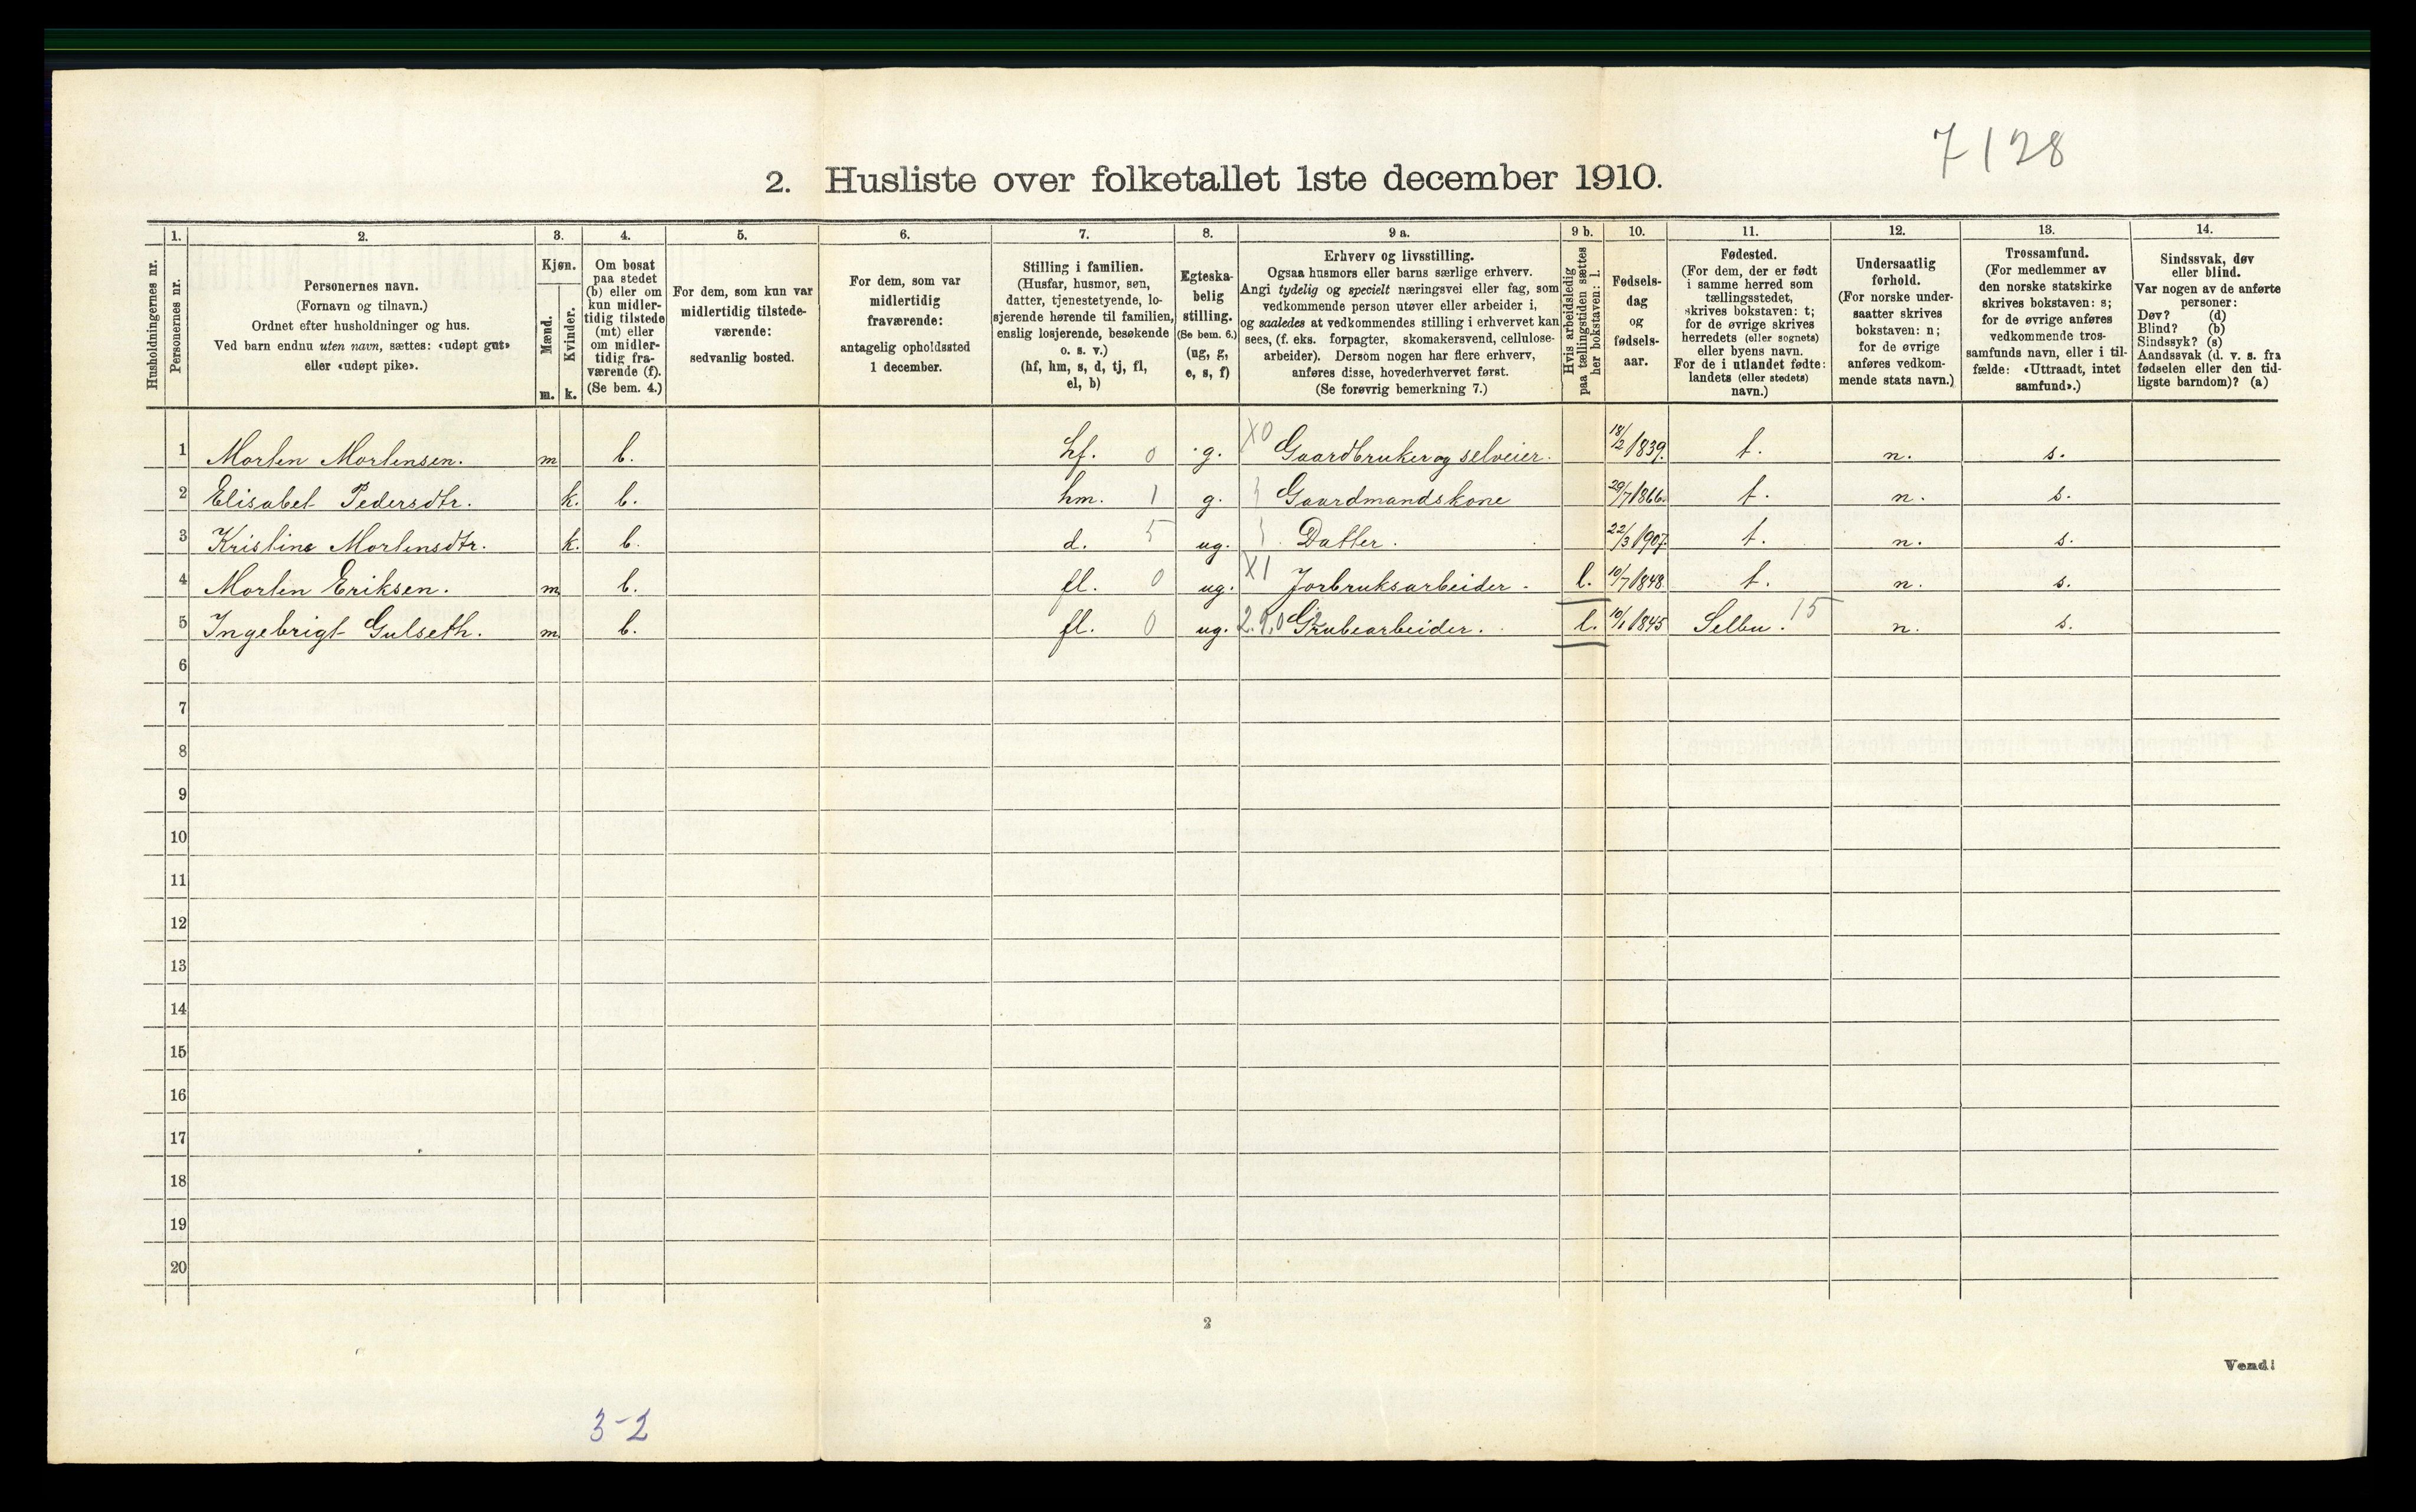 7128
2. Husliste over folketallet 1ste december 1910.
Husholdningernes nr.
1.
Personernes nr.
2.
Personernes navn.
(Fornavn og tilnavn.)
Ordnet efter husholdninger og hus.
Ved barn endnu uten navn, sættes: «udøpt gut»
eller «udøpt pike».
3.
Kjøn.
Mænd.
Kvinder.
m.
k.
4.
Om bosat
paa stedet
(b) eller om
kun midler-
tidig tilstede
(mt) eller
om midler-
tidig fra-
værende (f).
(Se bem. 4.)
5.
For dem, som kun var
midlertidig tilstede-
værende:
sedvanlig bosted.
6.
For dem, som var
midlertidig
fraværende:
antagelig opholdssted
1 december.
7.
Stilling i familien.
(Husfar, husmor, søn,
datter, tjenestetyende, lo-
sjerende hørende til familien,
enslig losjerende, besøkende
o. s. v.)
(hf, hm, s, d, tj, fl,
el, b)
8.
Egteska-
belig
stilling.
(Se bem. 6.)
(ug, g,
e, s, f)
9 a.
Erhverv og livsstilling.
Ogsaa husmors eller barns særlige erhverv.
Angi tydelig og specielt næringsvei eller fag, som
vedkommende person utøver eller arbeider i,
og saaledes at vedkommendes stilling i erhvervet kan
sees, (f. eks. forpagter, skomakersvend, cellulose-
arbeider). Dersom nogen har flere erhverv,
anføres disse, hovederhvervet først.
(Se forøvrig bemerkning 7.)
9 b.
Hvis arbeidsledig
paa tællingstiden sættes
her bokstaven: l.
10.
Fødsels-
dag
og
fødsels-
aar.
11.
Fødested.
(For dem, der er født
i samme herred som
tællingsstedet,
skrives bokstaven: t;
for de øvrige skrives
herredets (eller sognets)
eller byens navn.
For de i utlandet fødte:
landets (eller stedets)
navn.)
12.
Undersaatlig
forhold.
(For norske under-
saatter skrives
bokstaven: n;
for de øvrige
anføres vedkom-
mende stats navn.)
13.
Trossamfund.
(For medlemmer av
den norske statskirke
skrives bokstaven: s;
for de øvrige anføres
vedkommende tros-
samfunds navn, eller i til-
fælde: «Uttraadt, intet
samfund».)
14.
Sindssvak, døv
eller blind.
Var nogen av de anførte
personer:
Døv? (d)
Blind? (b)
Sindssyk? (s)
Aandssvak (d. v. s. fra
fødselen eller den tid-
ligste barndom)? (a)
1 Morten Mortensen. m b. hf. 0 g. X0 Gaardbruker og selveier. 18/2 1839. t. n. s.
2 Elisabet Pedersdtr. k. b. hm. 1 g. Gaardmandskone 29/7 1866. t. n. s.
3 Kristine Mortensdtr. k. b. d. 5 ug. Datter. 22/3 1907. t. n. s.
4 Morten Eriksen. m b. fl. 0 ug. X1 Jorbruksarbeider - l. 10/7 1848. t. n. s.
5 Ingebrigt Gulseth. m b. fl. 0 ug. Grubearbeider. l. 10/1 1845 Selbu. 15 n. s.
6
7
8
9
10
11
12
13
14
15
16
17
18
19
20
2
Vend!
3-2